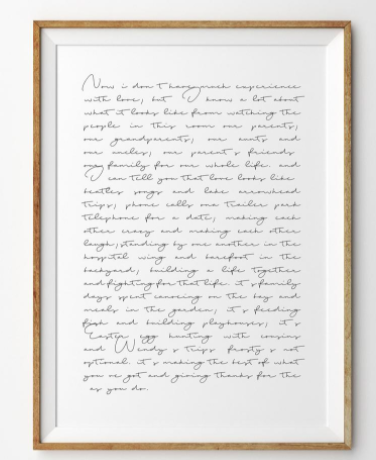 Now i don t have much experience
with love; but I know a lot about
what it looks like from watching the
people in this room our parents;
our grandparents; our aunts and
our uncles; our parent s friends
my family for our whole life. and
I can tell you that love looks like
beatles songs and lake arrowhead
trips; phone calls one trailer park
telephone for a date; making each
other crazy and making each other
laugh;standing by one another in the
hospital wing and barefoot in the
backyard; building a life together
and fighting for that life. it s family
days spent canoeing on the bay and
meals in the garden; it s feeding
fish and building playhouses; it s
Easter egg hunting with cousins
and Wendy s trips frosty s not
optional. it s making the best of what
you ve got and giving thanks for the
as you do.